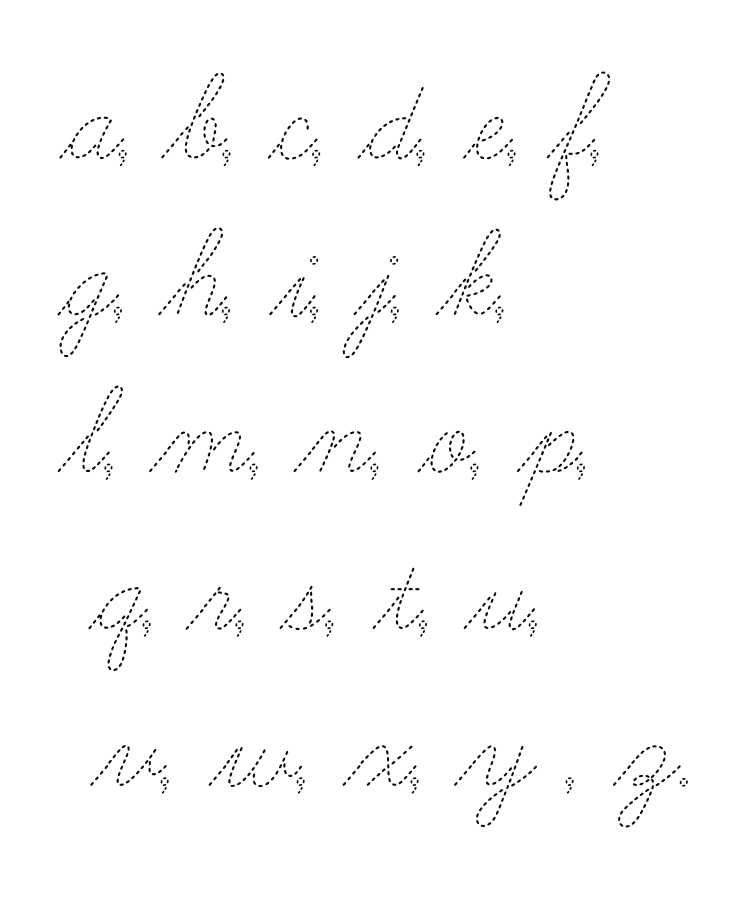 a, b, c, d, e, f,
g, h, i, j, k,
l, m, n, o, p,
q, r, s, t, u,
v, w, x, y, z.